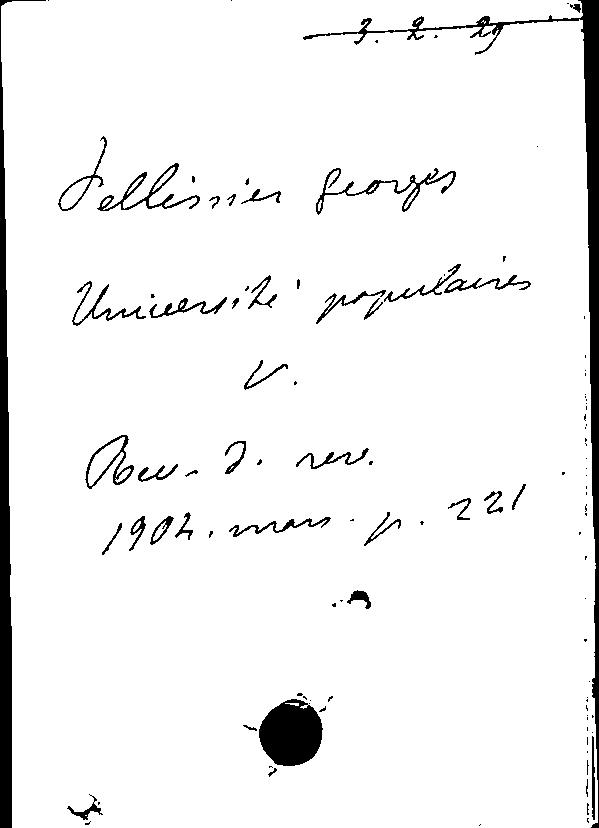 3. 2. 29
Pellissier Georges
Université populaires
V.
Rev. d. rev.
1904. mars. p. 221